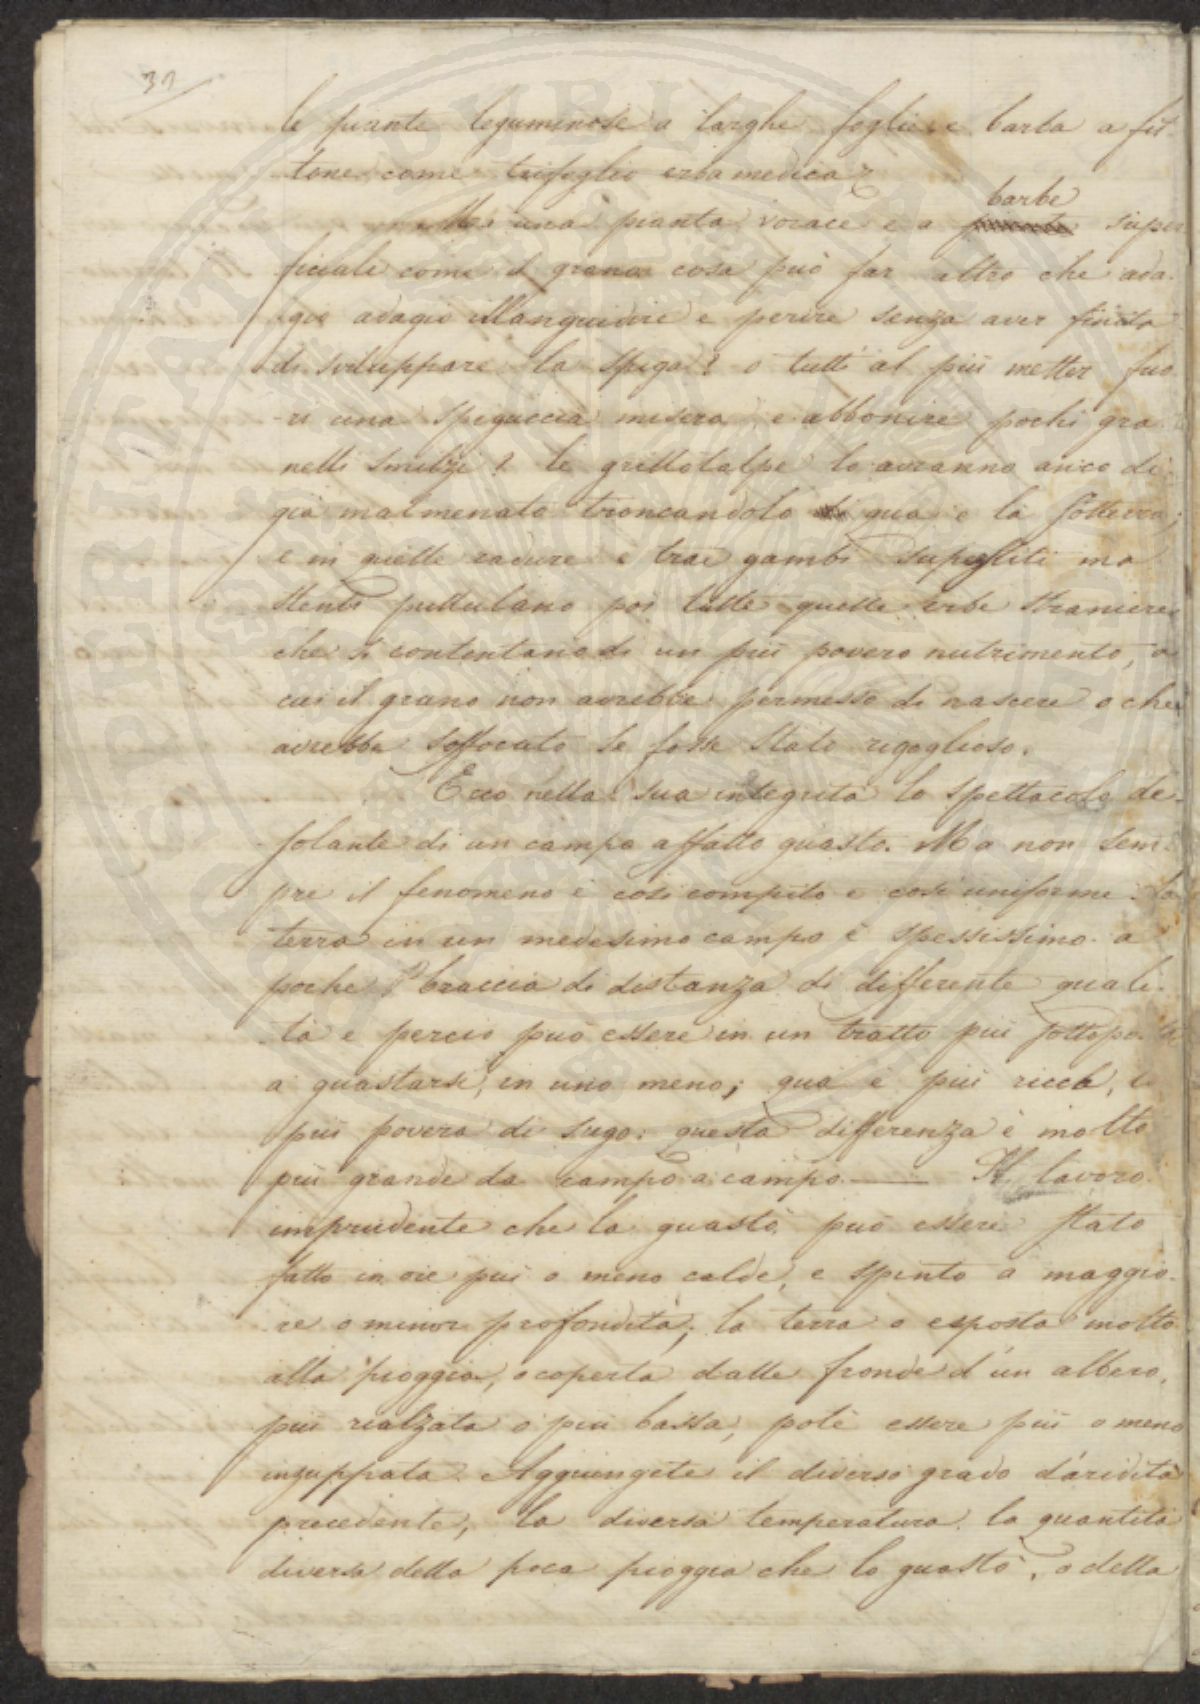 31
le piante leguminose a larghe foglie e barba a fit-
tone come trifoglio erba medica?
barbe
Ma una pianta vorace e a piante super
ficiale come il grano cosa può far altro che ada-
gio adagio illanguidire e perire senza aver finito
di sviluppare la spiga? o tutti al più metter fuo
-ri una spiguccia misera, e abbonire pochi gra-
nelli smilzi? le grillotalpe lo avranno anco di-
già malmenato troncandolo di qua e là sotterra;
e in quelle radure e trai gambi superstiti ma
stenti pullulano poi tutte quelle erbe straniere
che si contentano di un più povero nutrimento, a
cui il grano non avrebbe permesso di nascere o che
avrebbe soffocato se fosse stato rigoglioso.
Ecco nella sua integrità lo spettacolo de-
solante di un campo affatto guasto. Ma non sem-
pre il fenomeno è così compito e così uniforme. La
terra in un medesimo campo è spessissimo a
poche braccia di distanza di differente quali-
tà e perciò può essere in un tratto più sottoposta
a guastarsi, in uno meno; qua è più ricca, là
più povera di sugo: questa differenza è molto
più grande da campo a campo. — Il lavoro
imprudente che la guastò può essere stato
fatto in ore più o meno calde, e spinto a maggio-
re o minor profondità; la terra o esposta molto
alla pioggia, o coperta dalle fronde d'un albero,
più rialzata o più bassa, potè essere più o meno
inzuppata. Aggiungete il diverso grado d'aridità
precedente, la diversa temperatura, la quantità
diversa della poca pioggia che lo guastò, o della
SOSPERITATI PVBLICAE